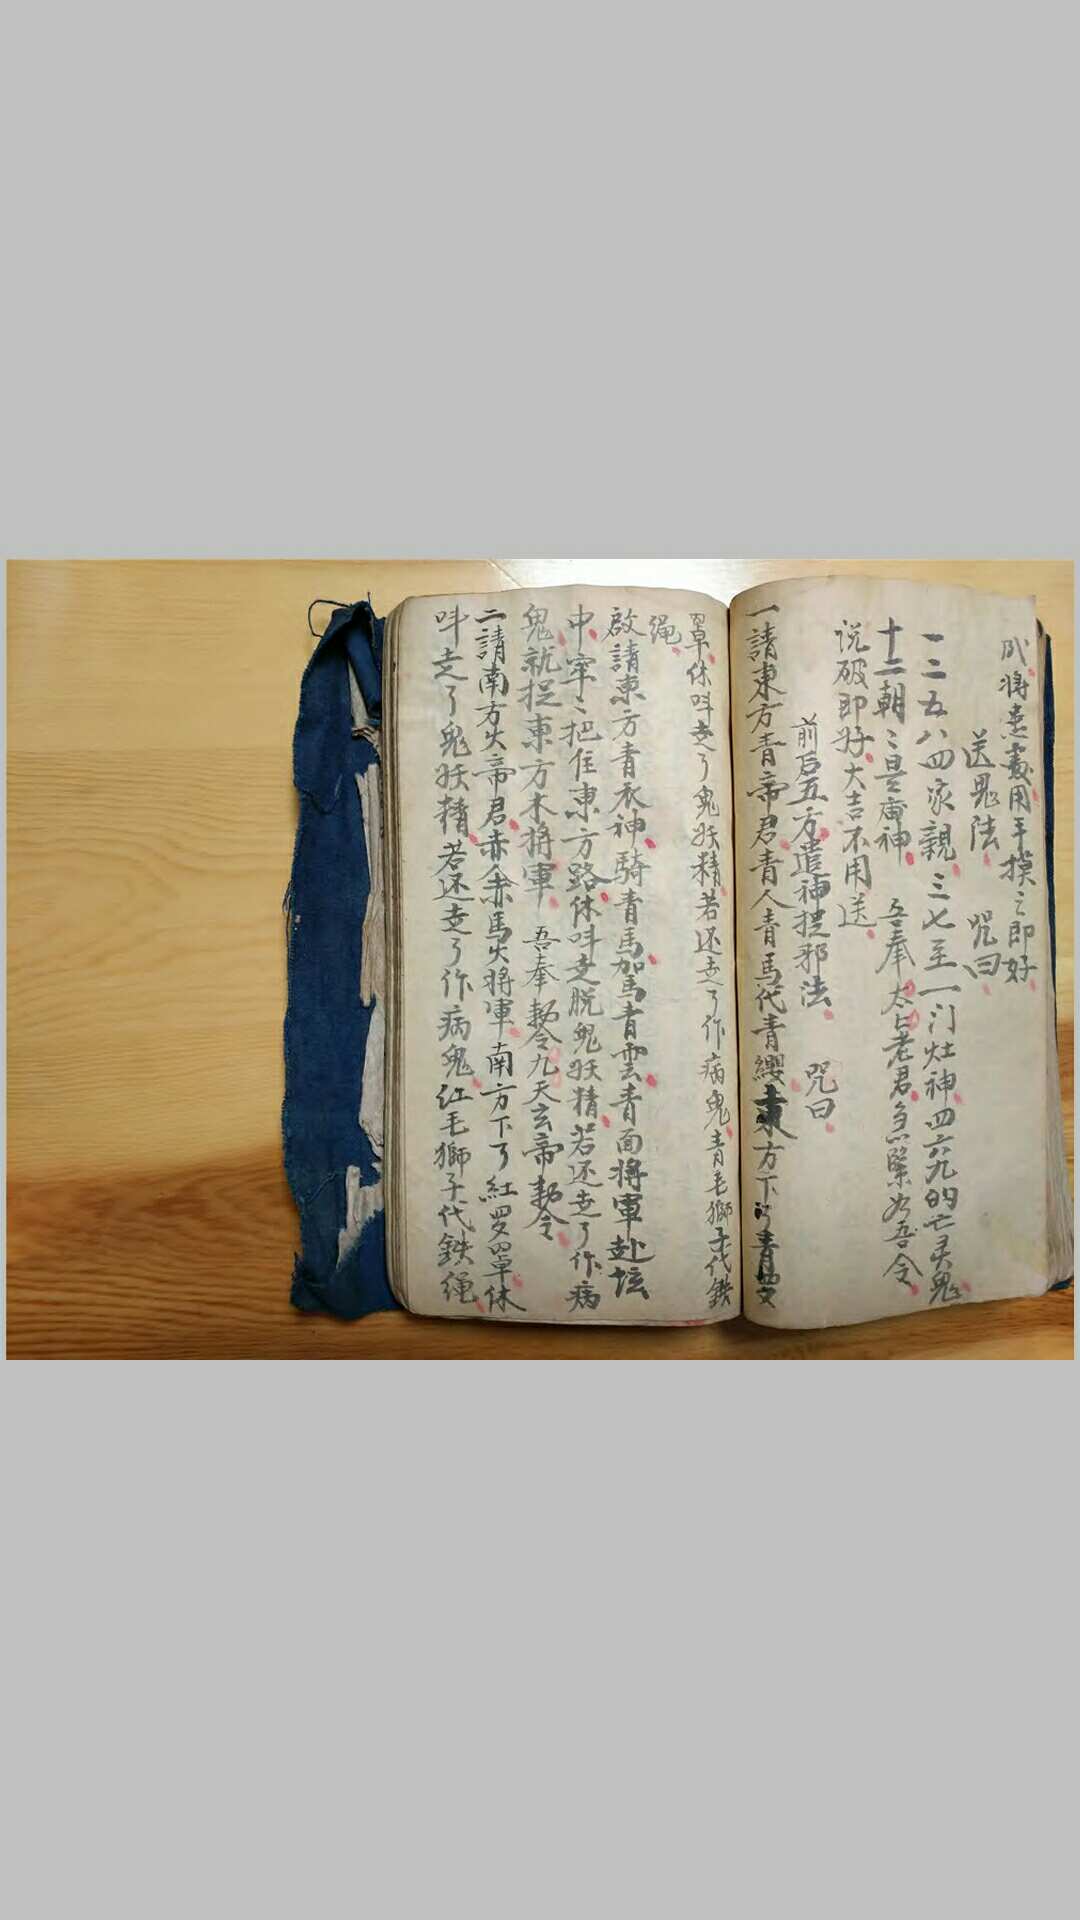 将患處用手摸之即好
送鬼法 咒曰
一二五八四家親三七至一门灶神四六九的亡灵鬼
十二朝〻是庙神 吾奉太上老君急緊如吾令
说破即好大吉不用送
前后五方遣神捉邪法 咒曰
一請東方青帝君青人青馬代青纓東方下了青
罩休呌走了鬼妖精若还走了作病鬼青毛獅子代鉄
绳
啟請東方青衣神騎青馬加馬青雲青面將軍赴坛
中牢〻把住東方路休呌走脱鬼妖精若还走了作病
鬼就捉東方木將軍 吾奉勅令九天玄帝勅令
二請南方火帝君赤人赤馬火將軍南方下了紅罗罩休
呌走了鬼妖精若还走了作病鬼红毛獅子代鉄绳